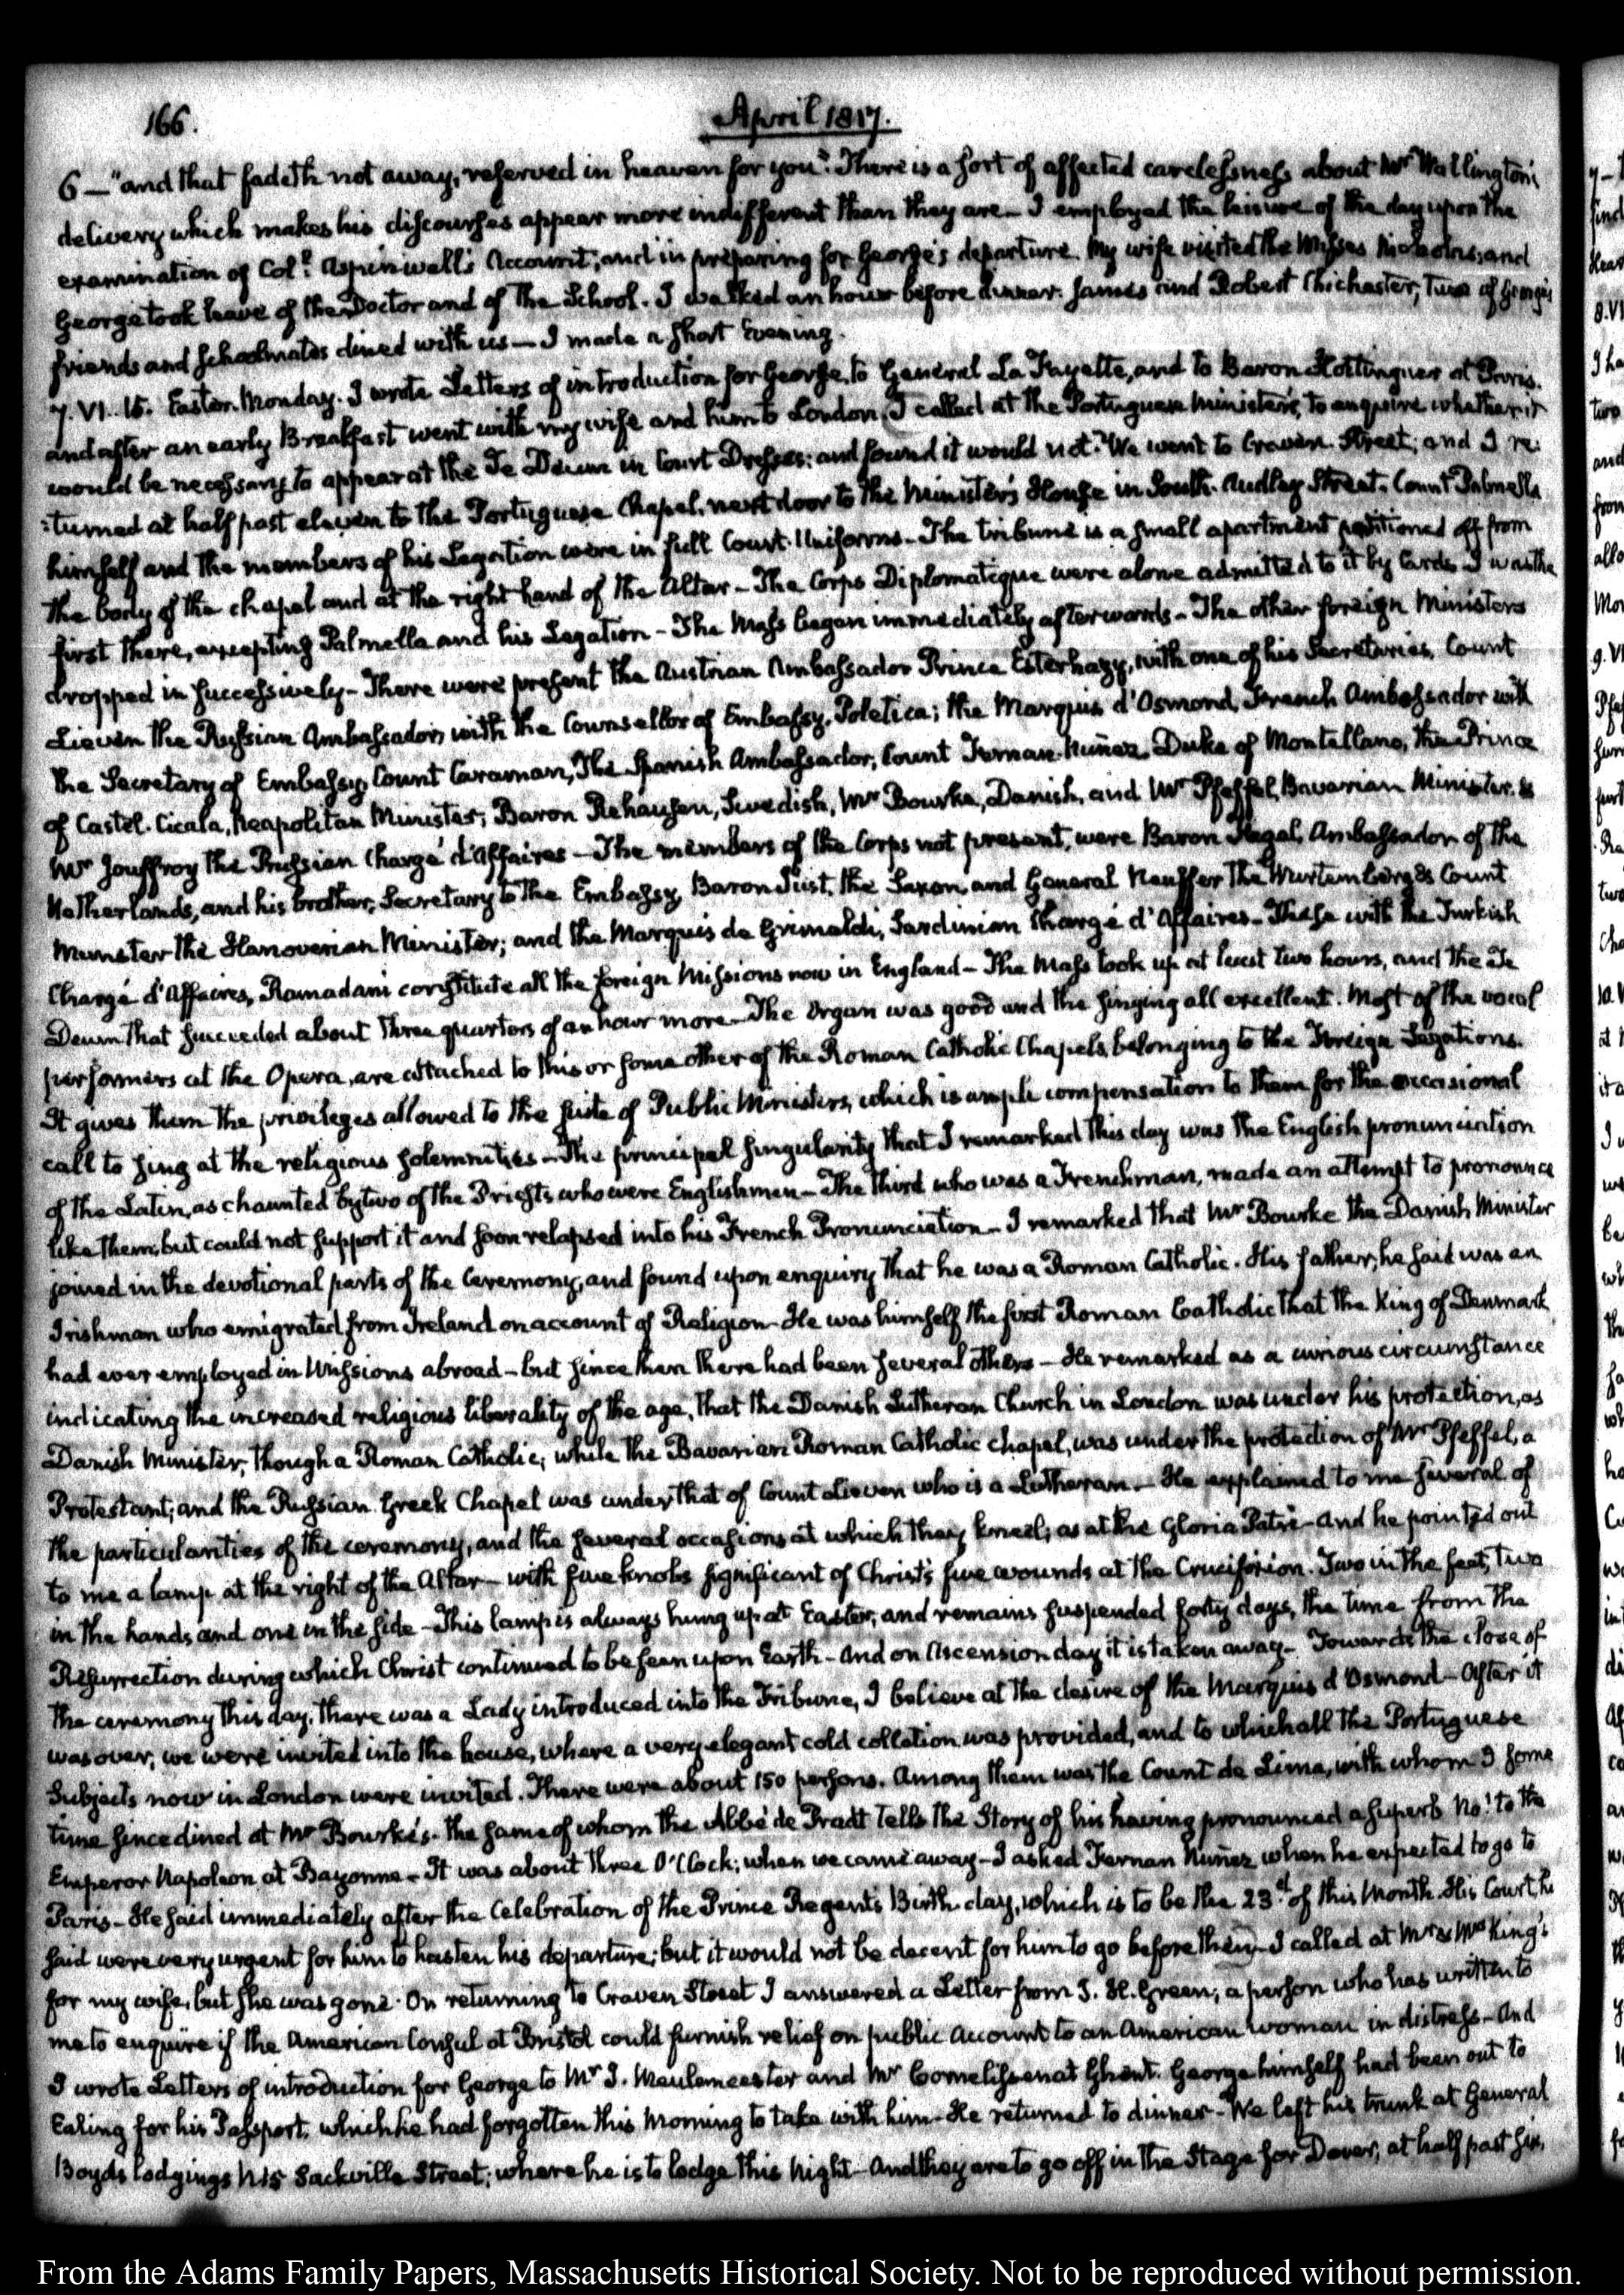 166.
April 1817.
6 — "and that fadeth not away, reserved in heaven for you". There is a sort of affected carelessness about Mr Wallington's
delivery which makes his discourses appear more indifferent than they are — I employed the leisure of the day upon the
examination of Coll. Aspinwall's Account; and in preparing for George's departure. My wife visited the Misses Nicholas; and
George took leave of the Doctor and of the School. I walked an hour before dinner. James and Robert Chichester, two of George's
friends and schoolmates dined with us — I made a short Evening.
7. VI. 15. Easter Monday. I wrote Letters of introduction for George, to General La Fayette, and to Baron Hottinguer at Paris.
and after an early Breakfast went with my wife and him to London. I called at the Portuguese Minister's, to enquire whether it
would be necessary to appear at the Te Deum in Court Dresses; and found it would not. We went to Craven Street; and I re:
:turned at half past eleven to the Portuguese Chapel, next door to the Minister's House in South Audley Street. Count Palmella
himself and the members of his Legation were in full Court Uniforms — The tribune is a small apartment partitioned off from
the body of the chapel and at the right hand of the Altar — The Corps Diplomatique were alone admitted to it by Cards I was the
first there, excepting Palmella and his Legation — The Mass began immediately afterwards — The other foreign Ministers
dropped in successively — There were present the Austrian Ambassador Prince Esterhazy, with one of his Secretaries, Count
Lieven the Russian Ambassador, with the Counsellor of Embassy, Poletica; the Marquis d'Osmond, French Ambassador with
the Secretary of Embassy, Count Caraman, The Spanish Ambassador, Count Fernan-Nuñez Duke of Montellano, the Prince
of Castel-Cicala, Neapolitan Minister; Baron Rehausen, Swedish, Mr Bourke, Danish, and Mr Pfeffel, Bavarian Minister. &
Mr Jouffroy the Prussian Chargé d'Affaires — The members of the Corps not present, were Baron Fagel, Ambassador of the
Netherlands, and his brother, Secretary to the Embassy, Baron Just, the Saxon, and General Neuffer the Wurtemberg & Count
Munster the Hanoverian Minister; and the Marquis de Grimaldi, Sardinian Chargé d'Affaires — These with the Turkish
Chargé d'Affaires, Ramadani constitute all the foreign Missions now in England — The Mass took up at least two hours, and the Te
Deum that succeeded about three quarters of an hour more — The Organ was good and the singing all excellent. Most of the vocal
performers at the Opera, are attached to this or some other of the Roman Catholic Chapels, belonging to the Foreign Legations.
It gives them the privileges allowed to the suite of Public Ministers, which is ample compensation to them for the occasional
call to sing at the religious solemnities — The principal singularity that I remarked this day was the English pronunciation
of the Latin, as chaunted by two of the Priests who were Englishmen — The third who was a Frenchman, made an attempt to pronounce
like them, but could not support it and soon relapsed into his French Pronunciation — I remarked that Mr Bourke the Danish Minister
joined in the devotional parts of the Ceremony, and found upon enquiry that he was a Roman Catholic. His father, he said was an
Irishman who emigrated from Ireland on account of Religion — He was himself the first Roman Catholic that the King of Denmark
had ever employed in Missions abroad — but since then there had been several others — He remarked as a curious circumstance
indicating the increased religious liberality of the age, that the Danish Lutheran Church in London was under his protection, as
Danish Minister, though a Roman Catholic; while the Bavarian Roman Catholic chapel, was under the protection of Mr Pfeffel, a
Protestant; and the Russian Greek Chapel was under that of Count Lieven who is a Lutheran — He explained to me several of
the particularities of the ceremony, and the several occasions at which they kneel; as at the Gloria Patri — And he pointed out
to me a lamp at the right of the Altar — with five knobs significant of Christ's five wounds at the Crucifixion. Two in the feet, two
in the hands and one in the side — This lamp is always hung up at Easter, and remains suspended forty days, the time from the
Resurrection during which Christ continued to be seen upon Earth — And on Ascension day it is taken away — Towards the close of
the ceremony this day, there was a Lady introduced into the Tribune, I believe at the desire of the Marquis d'Osmond — After it
was over, we were invited into the house, where a very elegant cold collation was provided, and to which all the Portuguese
Subjects now in London were invited. There were about 150 persons. Among them was the Count de Lima, with whom I some
time since dined at Mr Bourke's. the same of whom the Abbé de Pradt tells the Story of his having pronounced a superb No! to the
Emperor Napoleon at Bayonne — It was about three O'Clock; when we came away — I asked Fernan Nuñez when he expected to go to
Paris — He said immediately after the Celebration of the Prince Regent's Birth-day, which is to be the 23d of this Month. His Court, he
said were very urgent for him to hasten his departure; but it would not be decent for him to go before then — I called at Mr & Mrs King's
for my wife, but she was gone. On returning to Craven Street I answered a Letter from J. H. Green, a person who has written to
me to enquire if the American Consul at Bristol could furnish relief on public Account to an American woman in distress — And
I wrote Letters of introduction for George to Mr J. Meulemeester and Mr Cornelissen at Ghent. George himself had been out to
Ealing for his Passport, which he had forgotten this Morning to take with him — He returned to dinner — We left his trunk at General
Boyd's lodgings N 15 Sackville Street; where he is to lodge this Night — And they are to go off in the Stage for Dover, at half past six,
From the Adams Family Papers, Massachusetts Historical Society. Not to be reproduced without permission.